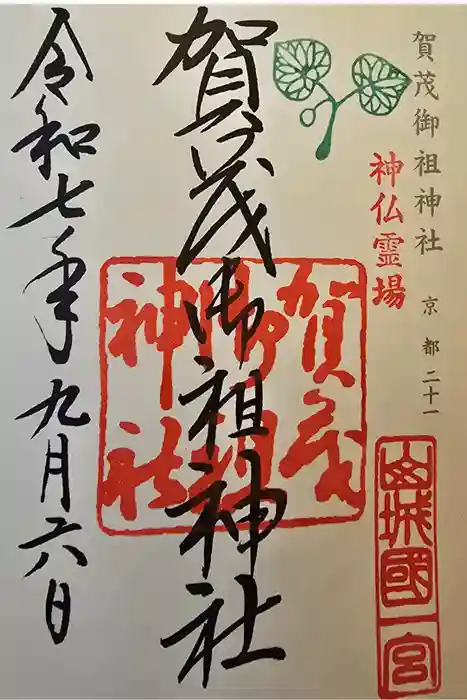 賀茂御祖神社
京都二十一
神仏霊場
山城國一宮
賀茂御祖神社
賀茂
御祖
神社
令和七年九月六日